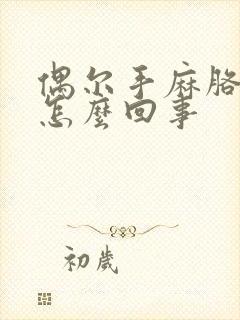 偶尔手麻胳
怎麼回事
初歲